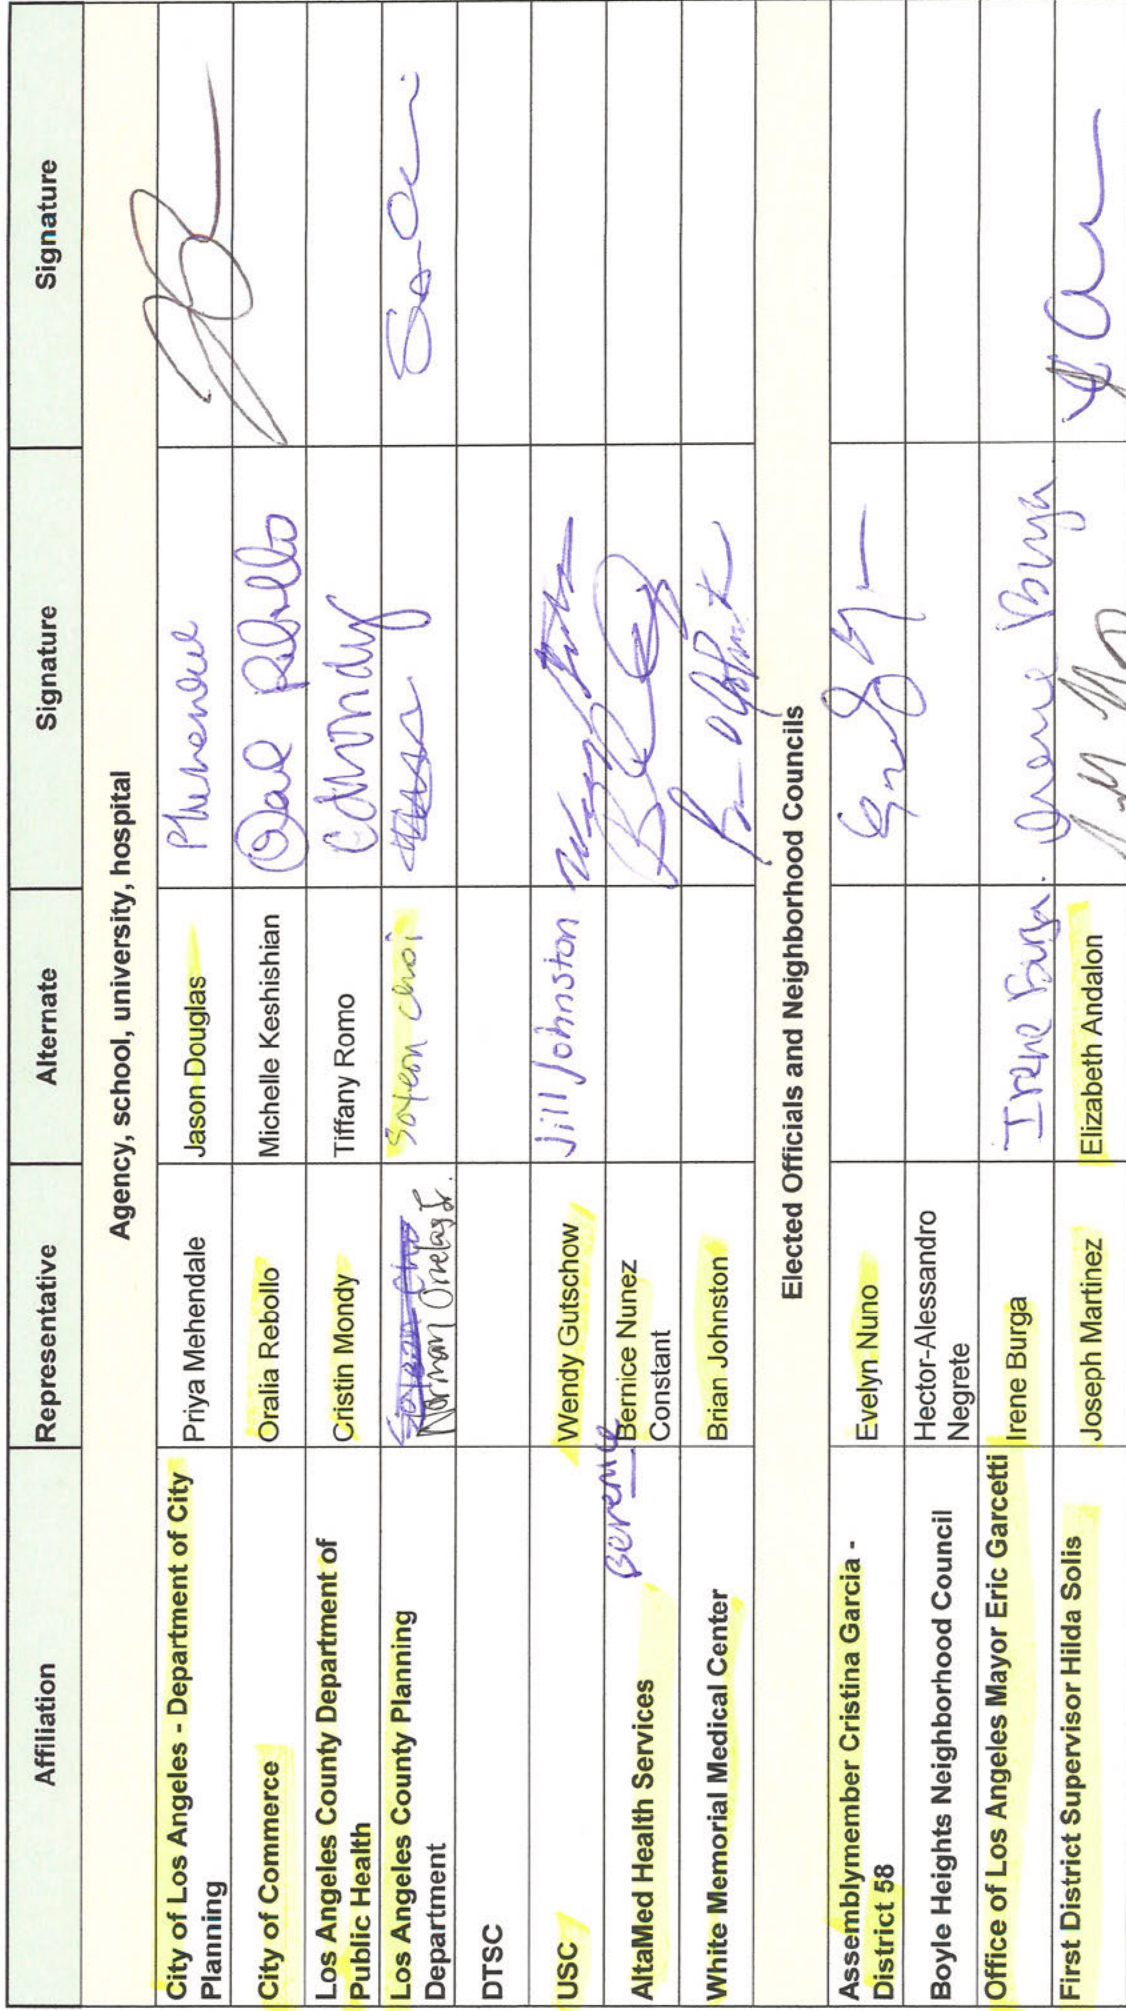 Affiliation Representative Alternate Signature Signature
Agency, school, university, hospital
City of Los Angeles - Department of City Planning Priya Mehendale Jason Douglas PMehendale
City of Commerce Oralia Rebollo Michelle Keshishian Oral Rebollo
Los Angeles County Department of Public Health Cristin Mondy Tiffany Romo CMondy
Los Angeles County Planning Department Norman Ornelas Jr. Soyeon Choi
DTSC
USC Wendy Gutschow Jill Johnston
AltaMed Health Services Berenice Bernice Nunez Constant
White Memorial Medical Center Brian Johnston
Elected Officials and Neighborhood Councils
Assemblymember Cristina Garcia - District 58 Evelyn Nuno
Boyle Heights Neighborhood Council Hector-Alessandro Negrete
Office of Los Angeles Mayor Eric Garcetti Irene Burga Irene Burga. Irene Burga
First District Supervisor Hilda Solis Joseph Martinez Elizabeth Andalon